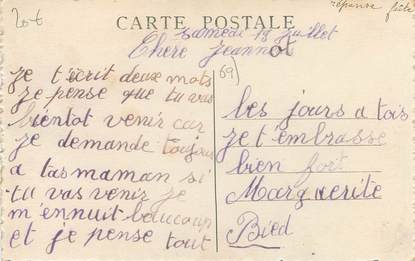 20€
réponse faite
CARTE POSTALE
Samedi 18 juillet
Chere Jeannot
(69)
je t'ecrit deux mots
je pense que tu vas
bientot venir car
je demande toujours
a tas maman si
tu vas venir je
m'ennuit beaucoup
et je pense tout
les jours a tois
je t'embrasse
bien fort
Marguerite
Bied